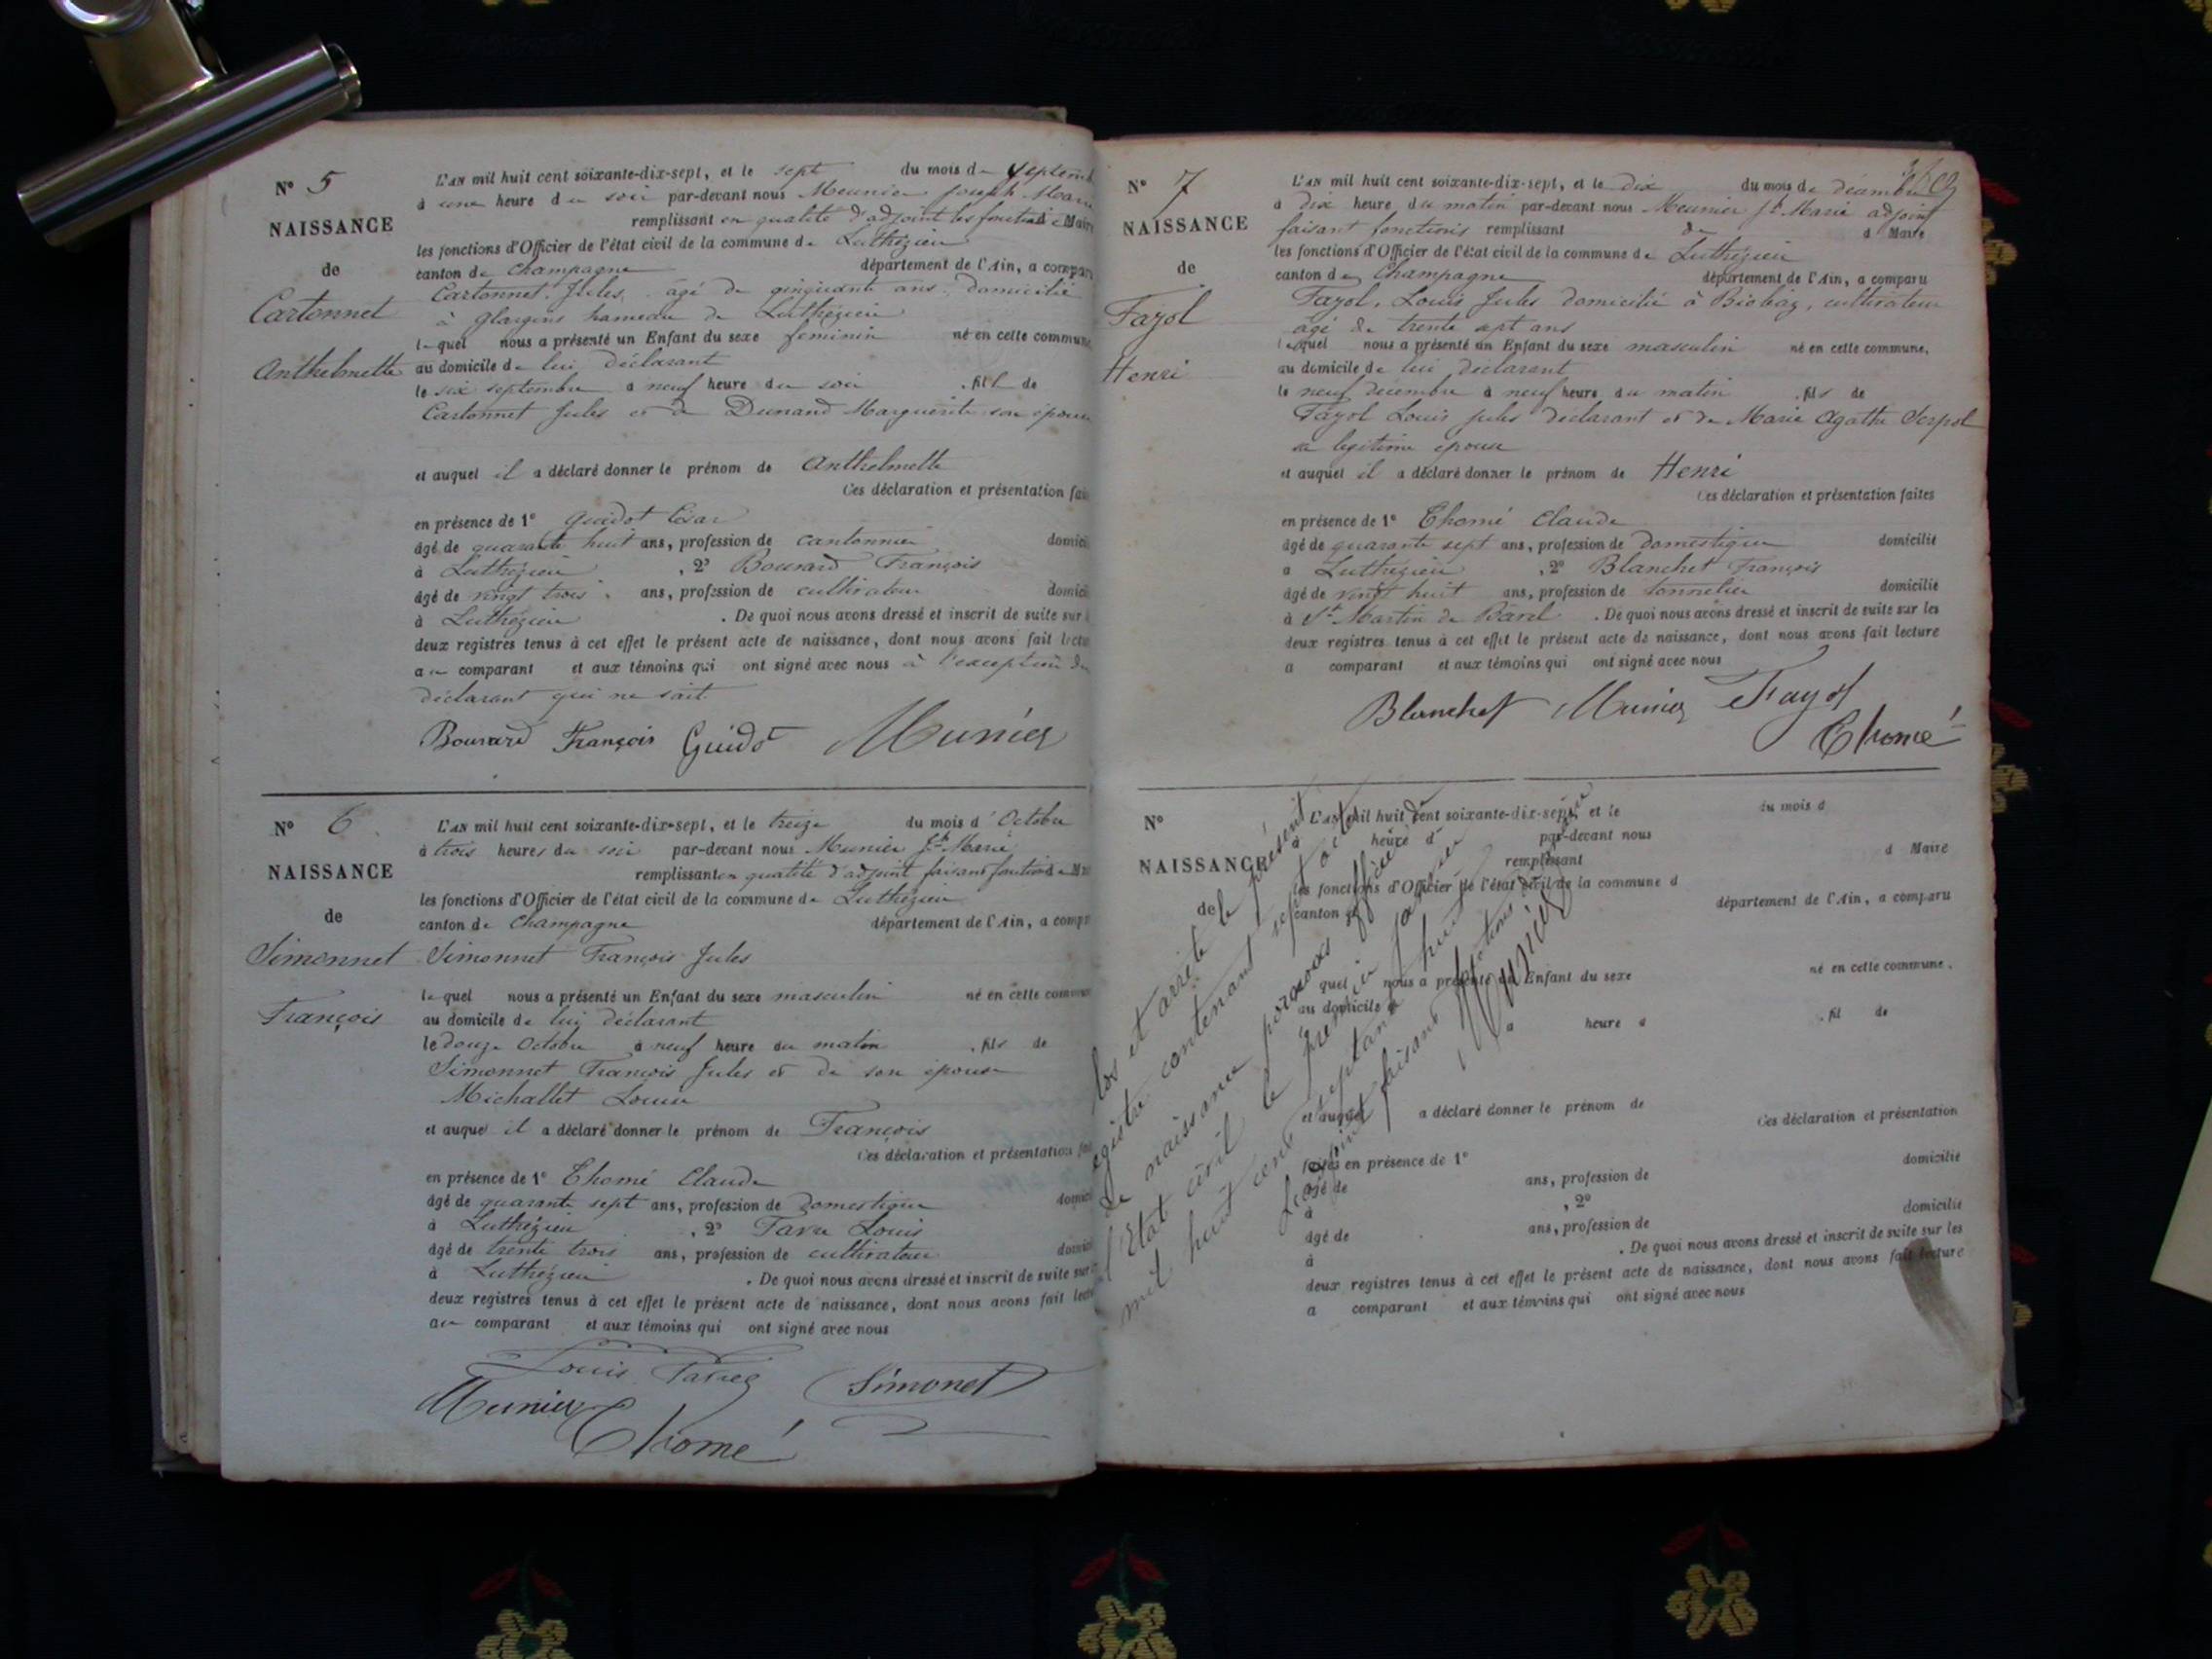 N° 5
NAISSANCE
de
Cartonnet
Anthelmette
L'AN mil huit cent soixante-dix-sept, et le sept du mois de Septemb
à une heure du soir par-devant nous Meunier Joseph Marie
remplissant en qualité d'adjoint les fonctions de Maire
les fonctions d'Officier de l'état civil de la commune de Luthézieu
canton de Champagne département de l'Ain, a compar
Cartonnet Jules, âgé de cinquante ans, domicilié
à hameau de Luthézieu
lequel nous a présenté un Enfant du sexe feminin né en cette commune
au domicile de lui déclarant
le six septembre à neuf heure du soir , fil de
Cartonnet Jules et de Dunand Marguerite son épouse
et auquel il a déclaré donner le prénom de Anthelmette
Ces déclaration et présentation fai
en présence de 1° Guidot César
âgé de quarante huit ans, profession de cantonnier domici
à Luthézieu , 2° Bouvard François
âgé de vingt trois ans, profession de cultivateur domici
à Luthézieu . De quoi nous avons dressé et inscrit de suite sur
deux registres tenus à cet effet le présent acte de naissance, dont nous avons fait lectu
au comparant et aux témoins qui ont signé avec nous à l'exception du
déclarant qui ne sait.
Bouvard François Guidot Munier
N° 6
NAISSANCE
de
Simonnet
François
L'AN mil huit cent soixante-dix-sept, et le treize du mois d'Octobre
à trois heures du soir par-devant nous Munier Jh Marie
remplissant en qualité d'adjoint faisant fonctions de
les fonctions d'Officier de l'état civil de la commune de Luthézieu
canton de Champagne département de l'Ain, a compa
Simonnet François Jules
lequel nous a présenté un Enfant du sexe masculin né en cette commun
au domicile de lui déclarant
le douze Octobre à neuf heure du matin , fils de
Simonnet François Jules et de son épouse
Michallet Louise
et auquel il a déclaré donner le prénom de François
Ces déclaration et présentation fai
en présence de 1° Thomé Claude
âgé de quarante sept ans, profession de domestique domici
à Luthézieu , 2° Louis
âgé de trente trois ans, profession de cultivateur domici
à Luthézieu . De quoi nous avons dressé et inscrit de suite sur
deux registres tenus à cet effet le présent acte de naissance, dont nous avons fait lectu
au comparant et aux témoins qui ont signé avec nous
Louis Simonet
Munier
Thomé
N° 7
NAISSANCE
de
Fayol
Henri
L'AN mil huit cent soixante-dix-sept, et le dix du mois de décembre
à dix heure du matin par-devant nous Meunier Jh Marie adjoint
faisant fonctions remplissant de d Maire
les fonctions d'Officier de l'état civil de la commune de Luthézieu
canton de Champagne département de l'Ain, a comparu
Fayol, Louis Jules domicilié à cultivateur
âgé de trente sept ans
lequel nous a présenté un Enfant du sexe masculin né en cette commune,
au domicile de lui déclarant
le neuf décembre à neuf heure du matin , fils de
Fayol Louis Jules déclarant et de Marie Agathe Serpol
sa legitime épouse
et auquel il a déclaré donner le prénom de Henri
Ces déclaration et présentation faites
en présence de 1° Thomé Claude
âgé de quarante sept ans, profession de domestique domicilié
à Luthézieu , 2° Blanchet François
âgé de vingt huit ans, profession de tonnelier domicilié
à St Martin de Bavel . De quoi nous avons dressé et inscrit de suite sur les
deux registres tenus à cet effet le présent acte de naissance, dont nous avons fait lecture
a comparant et aux témoins qui ont signé avec nous
Blanchet Munier Fayol
Thomé
N°
NAISSANCE
de
L'AN mil huit cent soixante-dix-sept, et le du mois d
à heure d par-devant nous
remplissant d Maire
les fonctions d'Officier de l'état civil de la commune d
canton d département de l'Ain, a comparu
quel nous a présenté un Enfant du sexe né en cette commune,
au domicile d
à heure d , fil de
et auquel a déclaré donner le prénom de
Ces déclaration et présentation
faites en présence de 1°
âgé de ans, profession de domicilié
à , 2°
âgé de ans, profession de domicilié
à . De quoi nous avons dressé et inscrit de suite sur les
deux registres tenus à cet effet le présent acte de naissance, dont nous avons fait lecture
a comparant et aux témoins qui ont signé avec nous
los et arrêté le présent
egistre contenant sept actes
de naissance par nous officier de
l'Etat civil le premier janvier
mil huit cent septante huit
L'adjoint faisant fonctions de
Munier